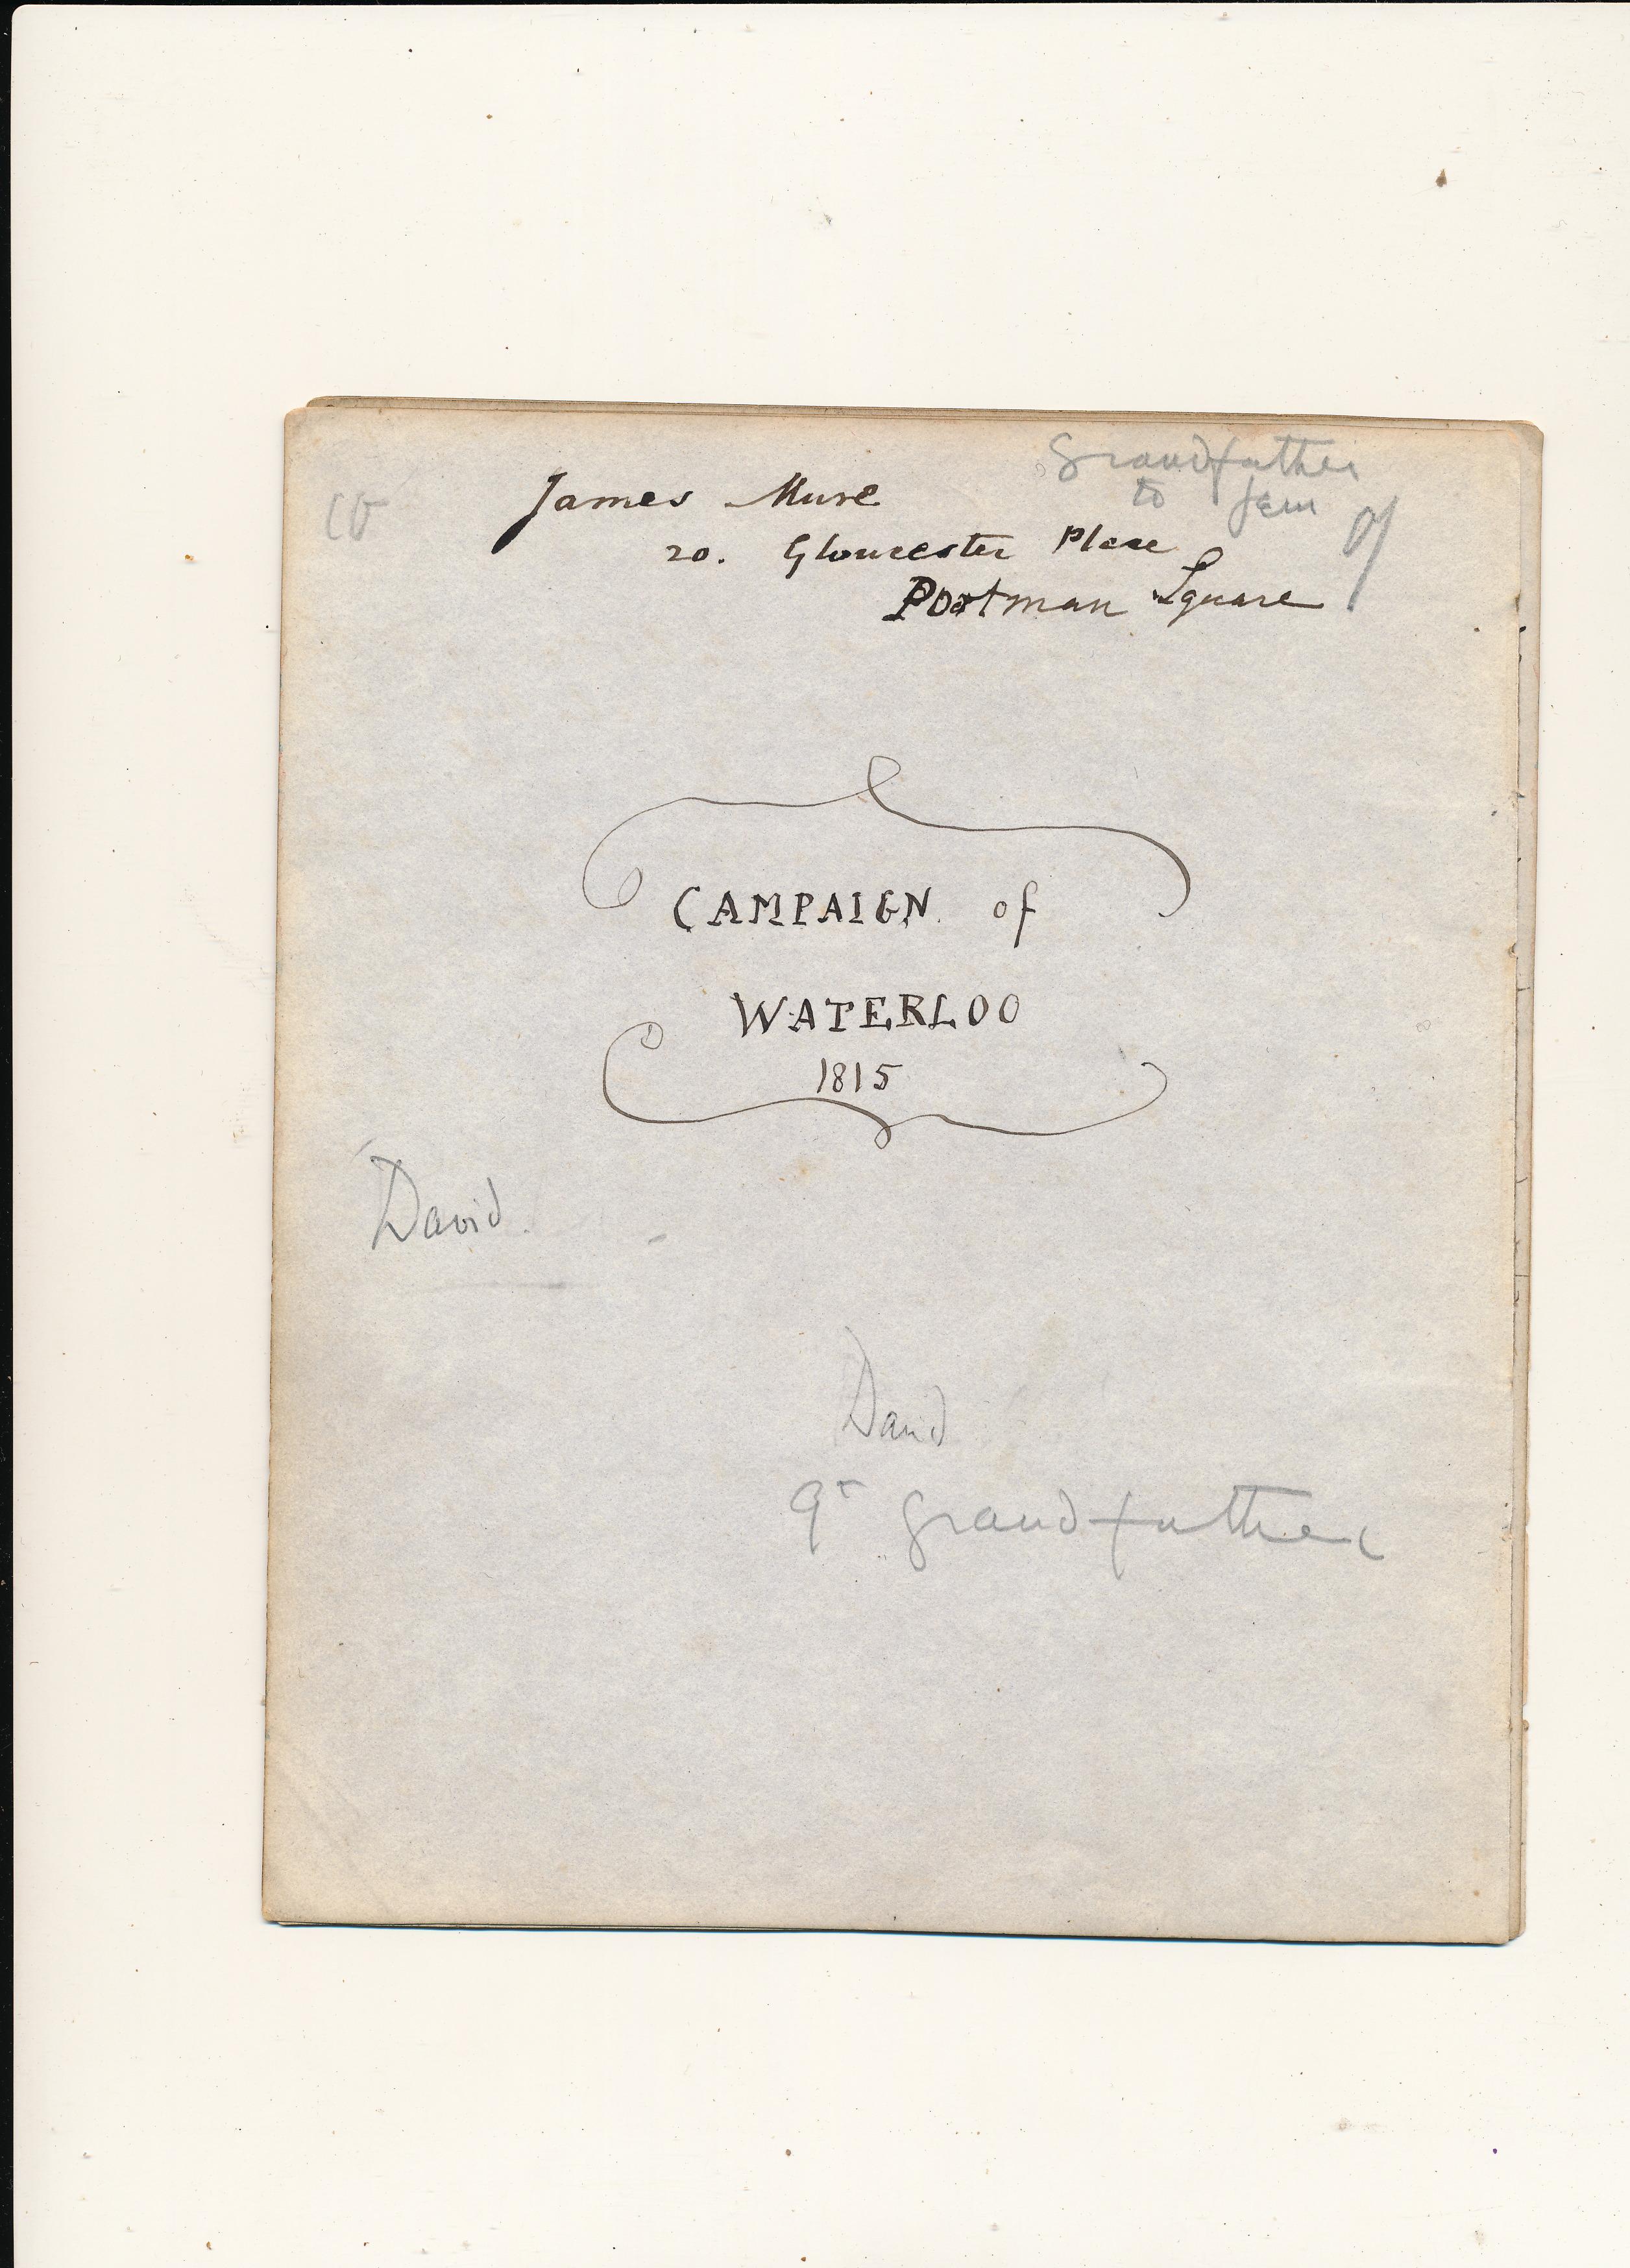 Grandfather
to Jem
James Mure
20. Gloucester Place
Portman Square
CAMPAIGN of
WATERLOO
1815
David
David
Gr Grandfather